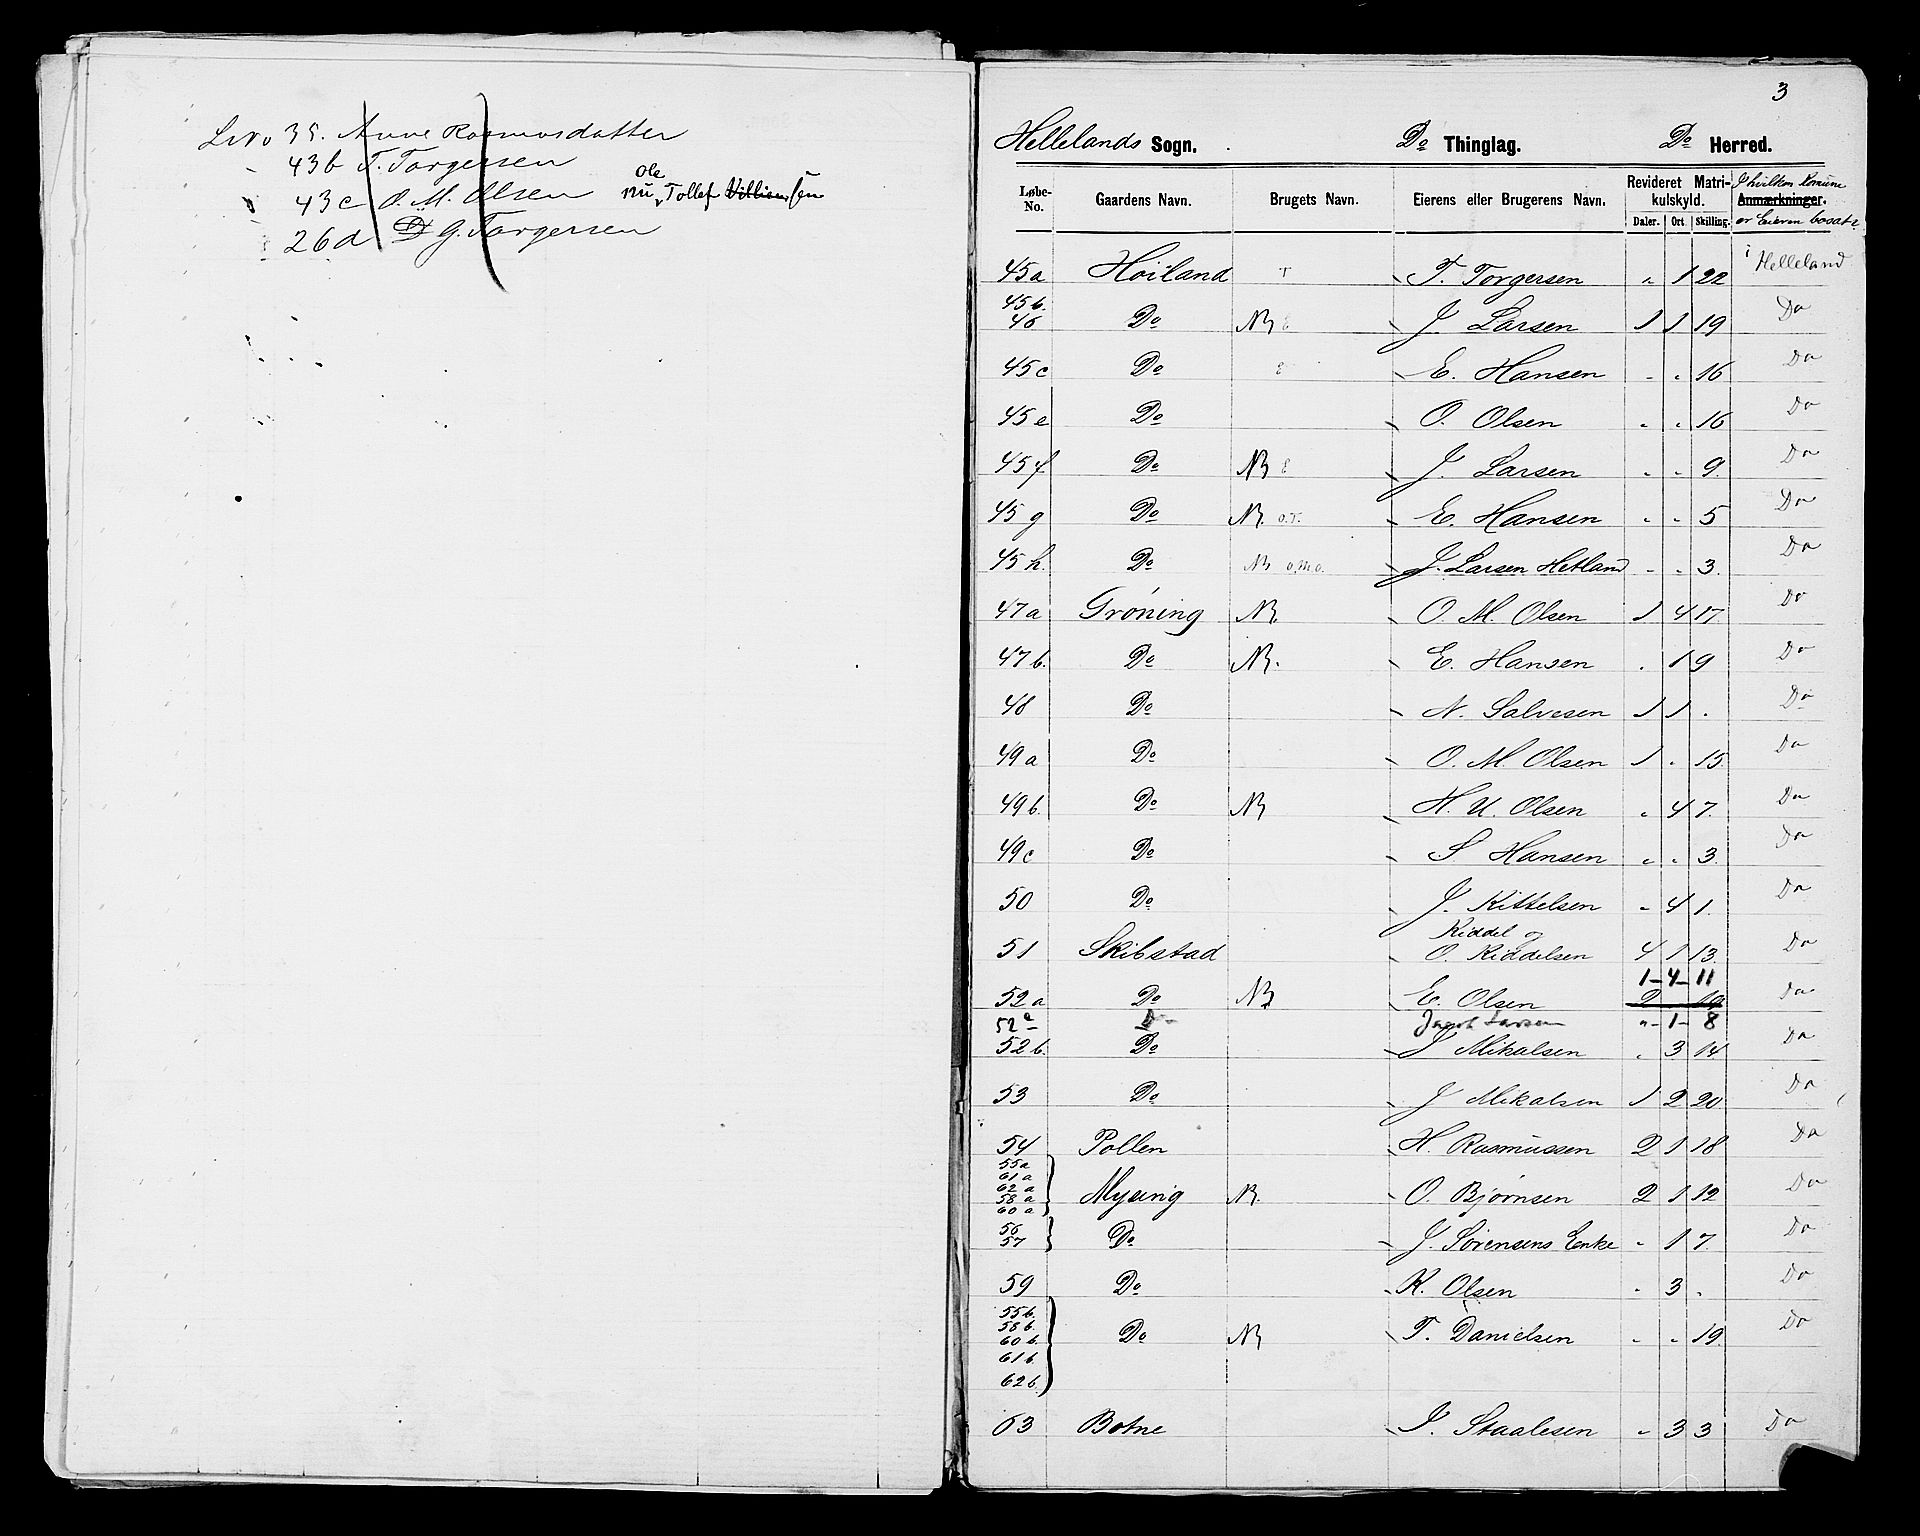 LNo 35. Anne Rasmusdatter
" 43b T. Torgersen
" 43c O. M. Olsen nu Ole Tollef Villiemsen
" 26d G. Torgersen
3
Hellelands Sogn. Do Thinglag. Do Herred.
Løbe-No. Gaardens Navn. Brugets Navn. Eierens eller Brugerens Navn. Revideret Matrikulskyld. Daler. Ort. Skilling. Anmærkninger. I hvilken Komune er Eieren bosat?
45a Höiland T T. Torgersen " 1 22 i Helleland
45b. 46 Do NB E J. Larsen 1 1 19 Do
45c Do E E. Hansen " " 16 Do
45e Do O. Olsen " " 16 Do
45f Do NB E J. Larsen " " 9. Do
45g Do NB. O.T. E. Hansen " " 5 Do
45h. Do NB O.M.O. J. Larsen Hetland " " 3. Do
47a Gröning NB. O. M. Olsen 1 4 17 Do
47b. Do NB. E. Hansen " 1 9 Do
48 Do N. Salvesen 1 1 " Do
49a Do O. M. Olsen 1 " 15 Do
49b. Do NB H. U. Olsen " 4 7. Do
49c Do S Hansen " " 3 Do
50 Do J. Kittelsen " 4 1. Do
51 Skibstad Kiddel og O. Kiddelsen 4 1 13. Do
1-4-11
52a Do NB E. Olsen 2 " 19 Do
52e Do Jacob Larsen "-1-8
52b. Do J Mikalsen " 3 14 Do
53 Do J Mikalsen 1 2 20 Do
54 Pollen H. Rasmussen 2 1 18 Do
55a 61a 62a 58a 60a Mysing NB. O. Bjørnsen 2 1 12 Do
56 57 Do J. Sørensens Enke " 1 7. Do
59 Do K. Olsen " 3 " Do
55b. 58b. 60b. 61b. 62b. Do NB T. Danielsen " " 19. Do
63 Botne J. Staalesen " 3 3 Do